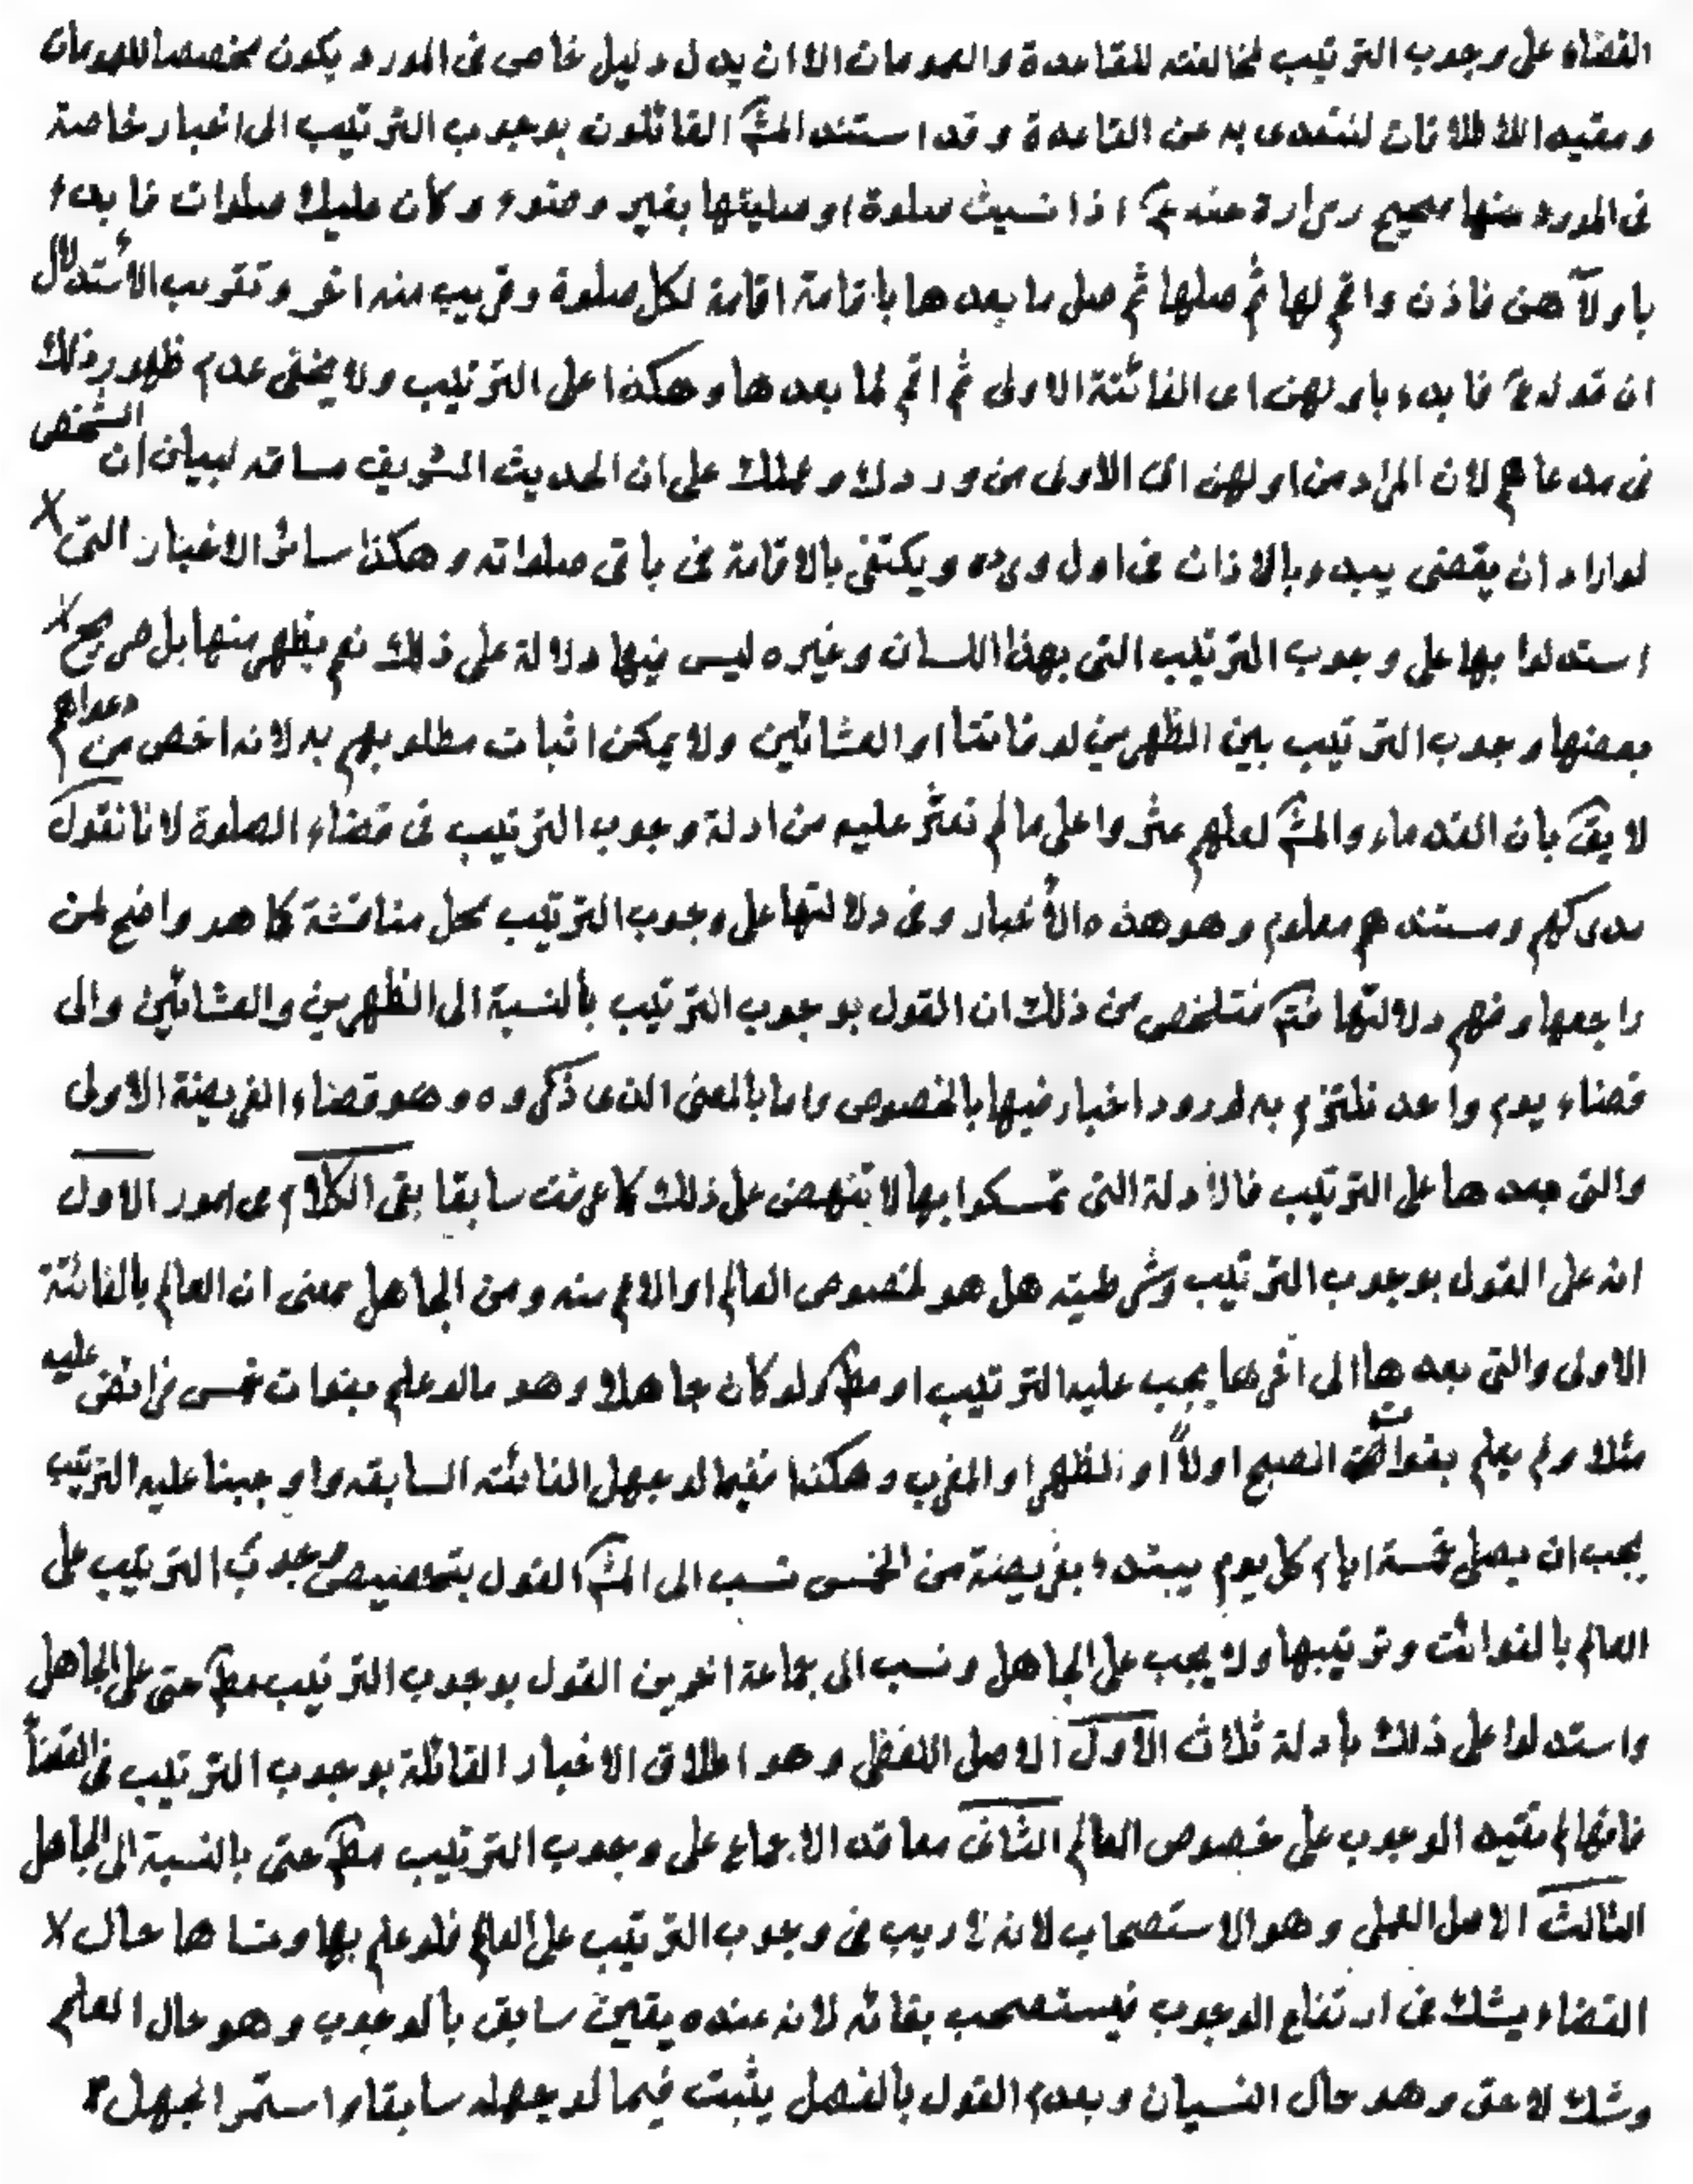 القضاء على وجوب الترتيب لمخالفته للقاعدة والعمومات الا ان يدل دليل خاص فى المورد ويكون مخصصا للعمومات
ومقيدا للاطلاقات لنتعدى به عن القاعدة وقد استند المش القائلون بوجوب الترتيب الى اخبار خاصة
فى المورد منها صحيح زرارة عنه ع اذا نسيت صلوة او صليتها بغير وضوء وكان عليك صلوات فابدء
باولاهن فاذن واقم لها ثم صلها ثم صل ما بعدها باقامة اقامة لكل صلوة وقريب منه اخر وتقريب الأستدلال
ان قوله ع فابدء باولهن اى الفائتة الاولى ثم اقم لما بعدها وهكذا على الترتيب ولا يخفى عدم ظهور ذلك
فى مدعاهم لان المراد من اولهن اى الاولى من وردك وعملك على ان الحديث الشريف مساقه لبيان ان الشخص
لو اراد ان يقضى يبدء بالاذان فى اول ورده ويكتفى بالاقامة فى باقى صلواته وهكذا سائر الاخبار التى
استدلوا بها على وجوب الترتيب التى بهذا اللسان وغيره ليس فيها دلالة على ذلك نعم يظهر منها بل صريح
بعضها وجوب الترتيب بين الظهرين لو فاتتا او العشائين ولا يمكن اثبات مطلوبهم به لانه اخص من دعواهم
لا يق بان القدماء والمش لعلهم عثروا على ما لم نعثر عليه من ادلة وجوب الترتيب فى قضاء الصلوة لانا نقول
مدركهم ومستندهم معلوم وهو هذه الأخبار وفى دلالتها على وجوب الترتيب محل مناقشة كما هو واضح لمن
راجعها وفهم دلالتها فتم فتلخص من ذلك ان القول بوجوب الترتيب بالنسبة الى الظهرين والعشائين والى
قضاء يوم واحد نلتزم به لورود اخبار فيها بالخصوص واما بالمعنى الذى ذكروه وهو قضاء الفريضة الاولى
والتى بعدها على الترتيب فالادلة التى تمسكوا بها لا تنهض على ذلك كما عرفت سابقا بقى الكلام فى امور الاول
انه على القول بوجوب الترتيب وشرطيته هل هو لخصوص العالم او الاعم منه ومن الجاهل بمعنى ان العالم بالفائتة
الاولى والتى بعدها الى اخرها يجب عليه الترتيب او مط ولو كان جاهلا وهو ما لو علم بفوات خمس فرائض عليه
مثلا ولم يعلم بفواتت الصبح اولاً او الظهر او المغرب وهكذا ففيما لو جهل الفائتة السابقه واوجبنا عليه الترتيب
يجب ان يصلى خمسة ايام كل يوم يبتدء بفريضة من الخمس نسب الى المش القول بتخصيص وجوب الترتيب على
العالم بالفوائت وترتيبها ولا يجب على الجاهل ونسب الى جماعة اخرين القول بوجوب الترتيب مط حتى على الجاهل
واستدلوا على ذلك بادلة ثلاث الاول الاصل اللفظى وهو اطلاق الاخبار القائلة بوجوب الترتيب فى القضأ
فانها لم تقيد الوجوب على خصوص العالم الثانى معاقد الاجماع على وجوب الترتيب مط حتى بالنسبة الى الجاهل
الثالث الاصل العملى وهو الاستصحاب لانه لا ريب فى وجوب الترتيب على العالم فلو علم بها ونساها حال
القضاء يشك فى ارتفاع الوجوب فيستصحب بقائه لانه عنده يقين سابق بالوجوب وهو حال العلم
وشك لاحق وهو حال النسيان وبعدم القول بالفصل يثبت فيما لو جهله سابقا واستمر الجهل